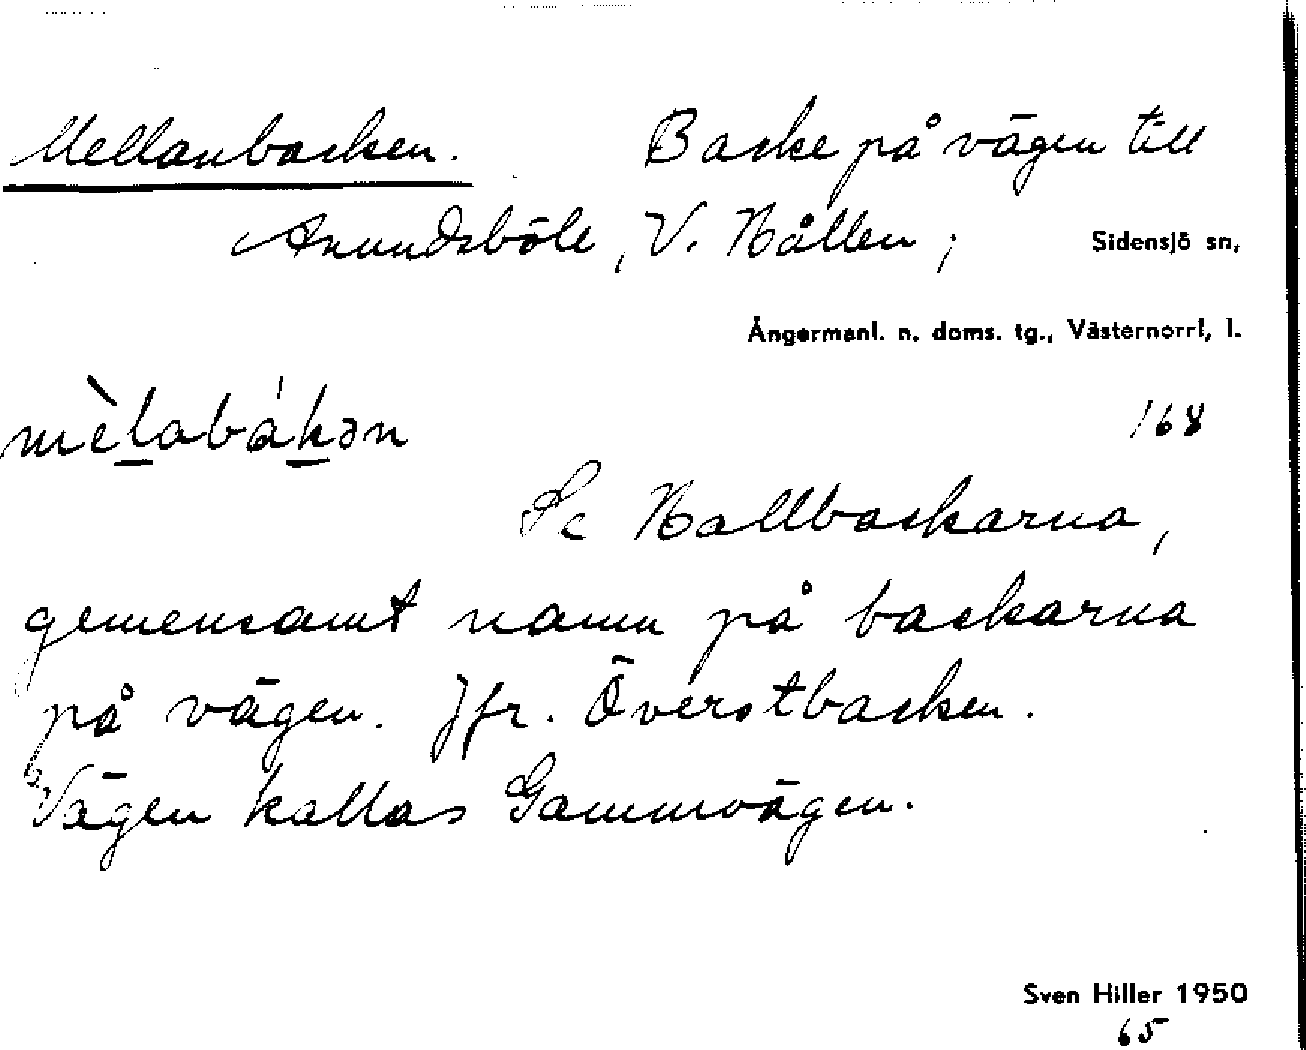 Mellanbacken. Backe på vägen till
Anundsböle, V. Hållen; Sidensjö sn,
Ångermanl. n. doms. tg., Västernorrl, l.
mèlabákən
168
Se Hallbackarna,
gemensamt namn på backarna
på vägen. Jfr. Överstbacken.
Vägen kallas Gammvägen.
Sven Hiller 1950
65